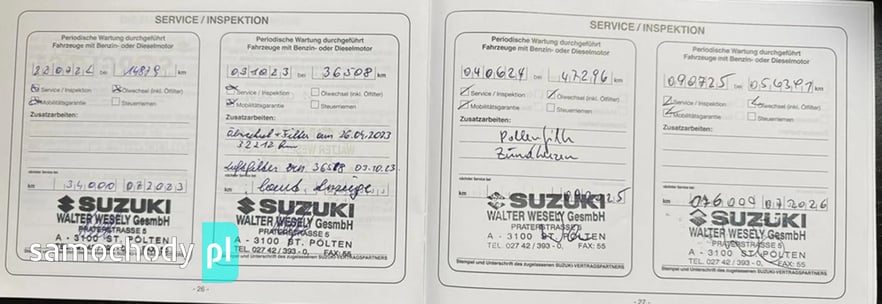 SERVICE / INSPEKTION
Periodische Wartung durchgeführt
Fahrzeuge mit Benzin- oder Dieselmotor
220722 bei 14879 km
Service / Inspektion Ölwechsel (inkl. Ölfilter)
Mobilitätsgarantie Steuerriemen
Zusatzarbeiten:
nächster Service bei
km 34000 072023
SUZUKI
WALTER WESELY GesmbH
PRATERSTRASSE 5
A - 3100 ST. PÖLTEN
Periodische Wartung durchgeführt
Fahrzeuge mit Benzin- oder Dieselmotor
031023 bei 36508 km
Service / Inspektion Ölwechsel (inkl. Ölfilter)
Mobilitätsgarantie Steuerriemen
Zusatzarbeiten:
Ölwechsel + Filter am 26.04.2023
32212 km
Luftfilter 03.10.23
nächster Service bei
km laut Anzeige
SUZUKI
WALTER WESELY GesmbH
PRATERSTRASSE 5
A - 3100 ST. PÖLTEN
TEL. 027 42 / 393 - 0, FAX: 55
Stempel und Unterschrift des zugelassenen SUZUKI-VERTRAGSPARTNERS
- 26 -
SERVICE / INSPEKTION
Periodische Wartung durchgeführt
Fahrzeuge mit Benzin- oder Dieselmotor
040624 bei 47296 km
Service / Inspektion Ölwechsel (inkl. Ölfilter)
Mobilitätsgarantie Steuerriemen
Zusatzarbeiten:
Pollenfilter
Zündkerzen
nächster Service bei
km
SUZUKI
WALTER WESELY GesmbH
PRATERSTRASSE 5
A - 3100 ST. PÖLTEN
TEL. 027 42 / 393 - 0, FAX: 55
Stempel und Unterschrift des zugelassenen SUZUKI-VERTRAGSPARTNERS
Periodische Wartung durchgeführt
Fahrzeuge mit Benzin- oder Dieselmotor
090725 bei km
Service / Inspektion Ölwechsel (inkl. Ölfilter)
Mobilitätsgarantie Steuerriemen
Zusatzarbeiten:
nächster Service bei
km 072026
SUZUKI
WALTER WESELY GesmbH
PRATERSTRASSE 5
A - 3100 ST. PÖLTEN
TEL. 027 42 / 393 - 0, FAX: 55
Stempel und Unterschrift des zugelassenen SUZUKI-VERTRAGSPARTNERS
- 27 -
samochody pl